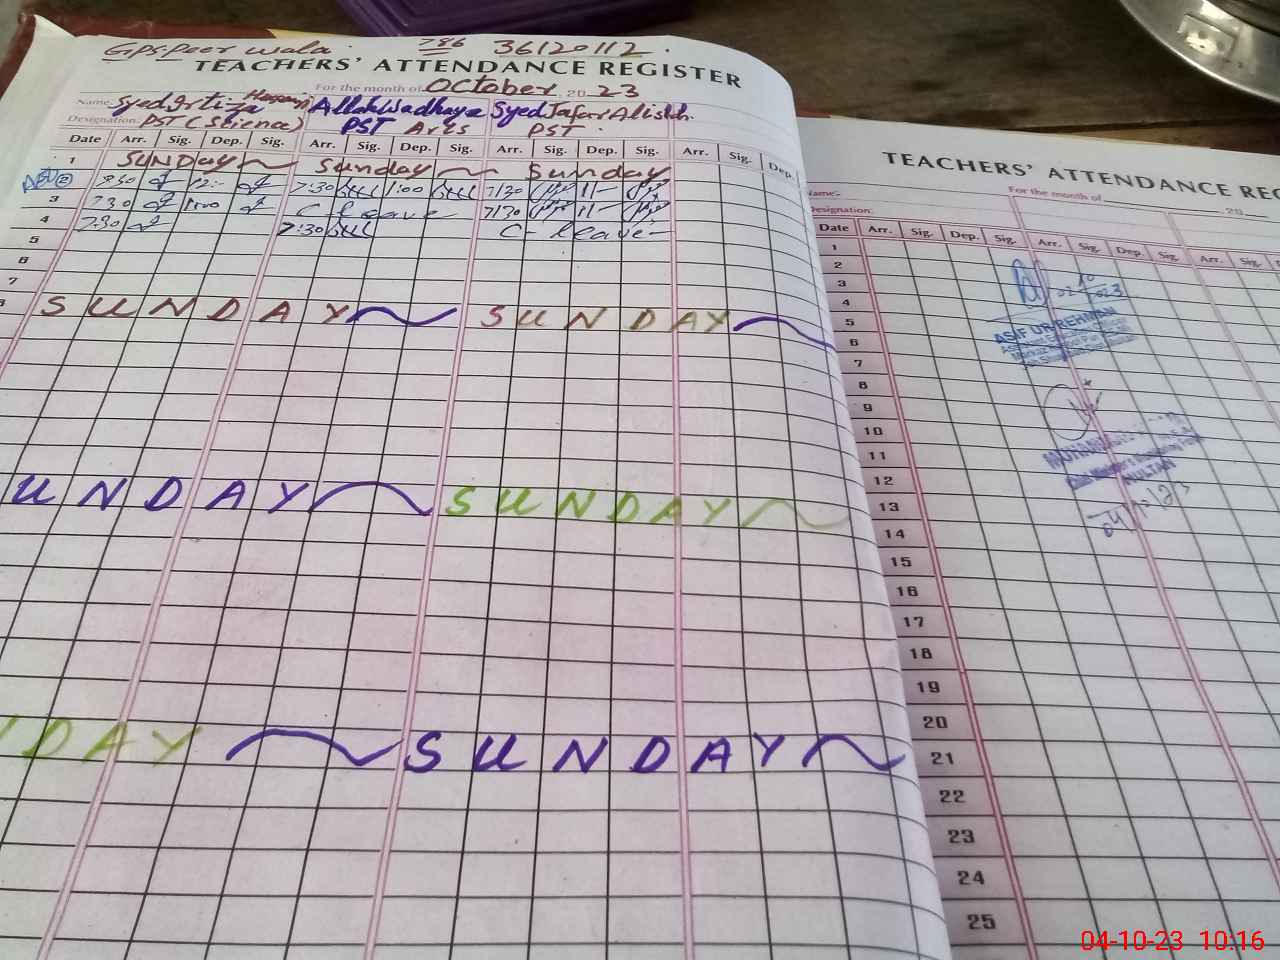 GPS Peer wala. 786 36120112.
TEACHERS' ATTENDANCE REGISTER
For the month of October, 20 23
Name: Syed Irtiza Allah Wadhaya Syed Jafar Ali
Designation: PST (Science) PST Arts PST.
Date Arr. Sig. Dep. Sig. Arr. Sig. Dep. Sig. Arr. Sig. Dep. Sig. Arr. Sig. Dep.
1 SUNDay Sunday Sunday
7:30 1:00 7/30 11
3 730 1:00 C. leave 7/30 11
4 7:30 7:30 C- leave-
5
6
7
SUNDAY SUNDAY
UNDAY SUNDAY
DAY SUNDAY
TEACHERS' ATTENDANCE REG
Name:- For the month of 20
Designation:
Date Arr. Sig. Dep. Sig. Arr. Sig. Dep. Sig. Arr. Sig.
1
2
3
4
5
6
7
8
9
10
11
12
13
14
15
16
17
18
19
20
21
22
23
24
25
ASIF UR REHMAN
MULTAN
04-10-23 10:16